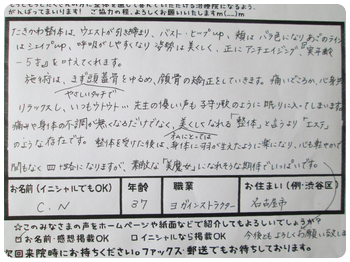 がんばってまいります！ご協力の程、よろしくお願いいたしますm(__)m
たきのわ整体は、ウエストが引き締まり、バスト・ヒップup、頬はバラ色になりあごのライン
はシェイプup、呼吸がしやすくなり姿勢は美しく、正にアンチエイジング『実年齢
−5才』を叶えてくれます。
施術は、まず頭蓋骨をゆるめ、顔骨の矯正をしていきます。痛いどころか、心身共
やさしいタッチで
リラックスし、いつもウトウト… 先生の優しい声も子守歌のように眠りに入ってしまいます。
痛みや身体の不調が無くなるだけでなく、美しくなれる「整体」と言うより「エステ」
私にとっては
のような存在です。整体を受けた後は、身体に羽が生えたように楽になり、心も軽やかで
間もなく四十才になりますが、素敵な「美魔女」になれそうな期待でいっぱいです。
お名前(イニシャルでもOK) 年齢 職業 お住まい (例:渋谷区)
C.N 37 ヨガインストラクター 名古屋市
☆このみなさまの声をホームページや紙面などで紹介してもよろしいでしょうか？
□お名前・感想掲載OK □イニシャルなら掲載OK 今後ともよろしくお願い致します
次回来院時にお持ちください。ファックス・郵送でもお待ちしております。